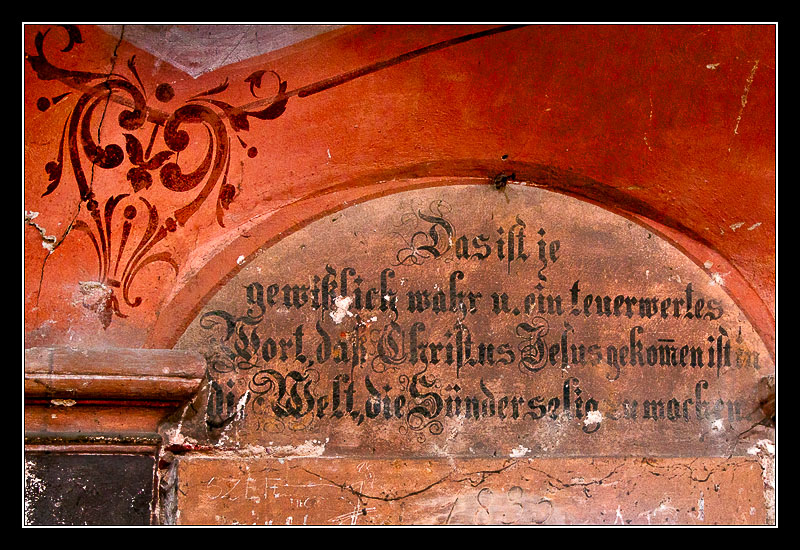 Das ist je
gewißlich wahr u. ein teuerwertes
Wort, daß Christus Jesus gekom̅en ist in
di Welt, die Sünder selig zu machen
1835